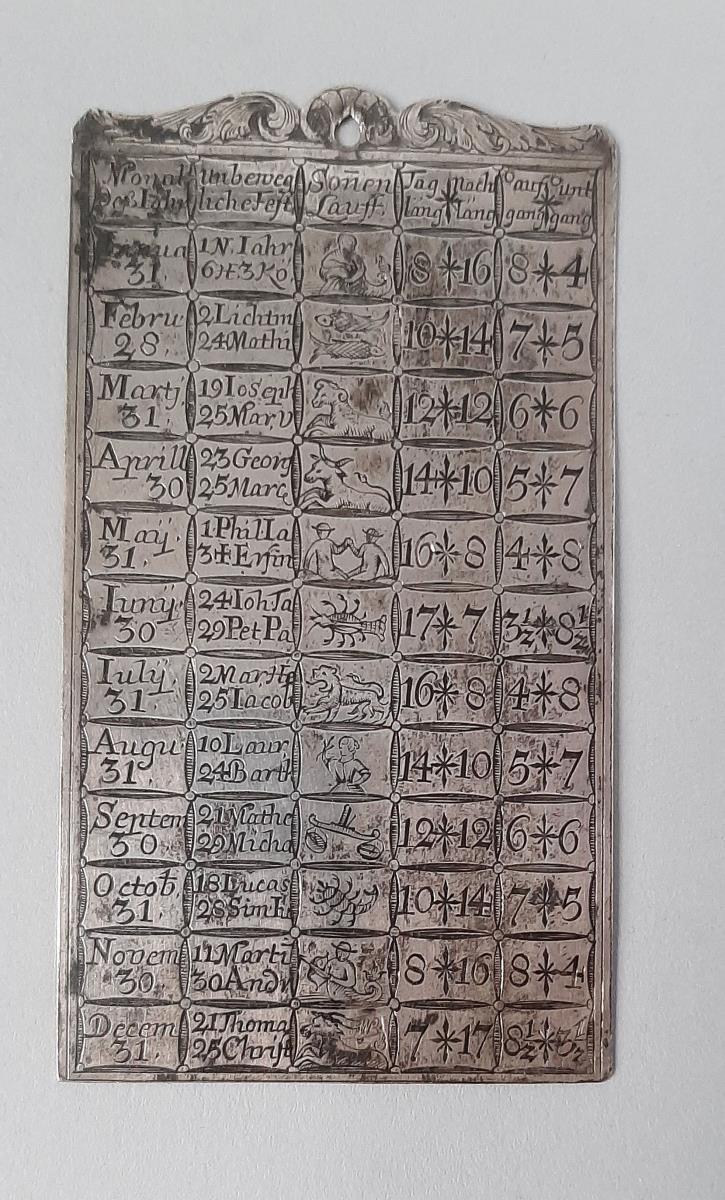 Monat unbeweg Sonen Tag nacht auf unt
Deß Iahr liche Fest Lauff. läng läng gang gang
1 N. Iahr
31 6 H 3 Kö 8 * 16 8 * 4
Febru 2 Lichtm
28. 24 Mathi 10 * 14 7 * 5
Martj 19 Ioseph
31. 25 Mar. v 12 * 12 6 * 6
Aprill 23 Georg
30 25 Marc 14 * 10 5 * 7
Maÿ. 1 Phil Ia
31. 3 Erfin 16 * 8 4 * 8
Iunÿ 24 Ioh Ta
30 29 Pet Pa 17 * 7 3½ * 8½
Iulÿ 2 Mar
31. 25 Iacob 16 * 8 4 * 8
Augu 10 Laur
31. 24 Barth 14 * 10 5 * 7
Septem 21 Mathe
30 29 Micha 12 * 12 6 * 6
Octob. 18 Lucas
31. 28 Sim 10 * 14 7 * 5
Novem 11 Marti
30. 30 And 8 * 16 8 * 4
Decem 21 Thoma
31. 25 Christ 7 * 17 8½ * 3½